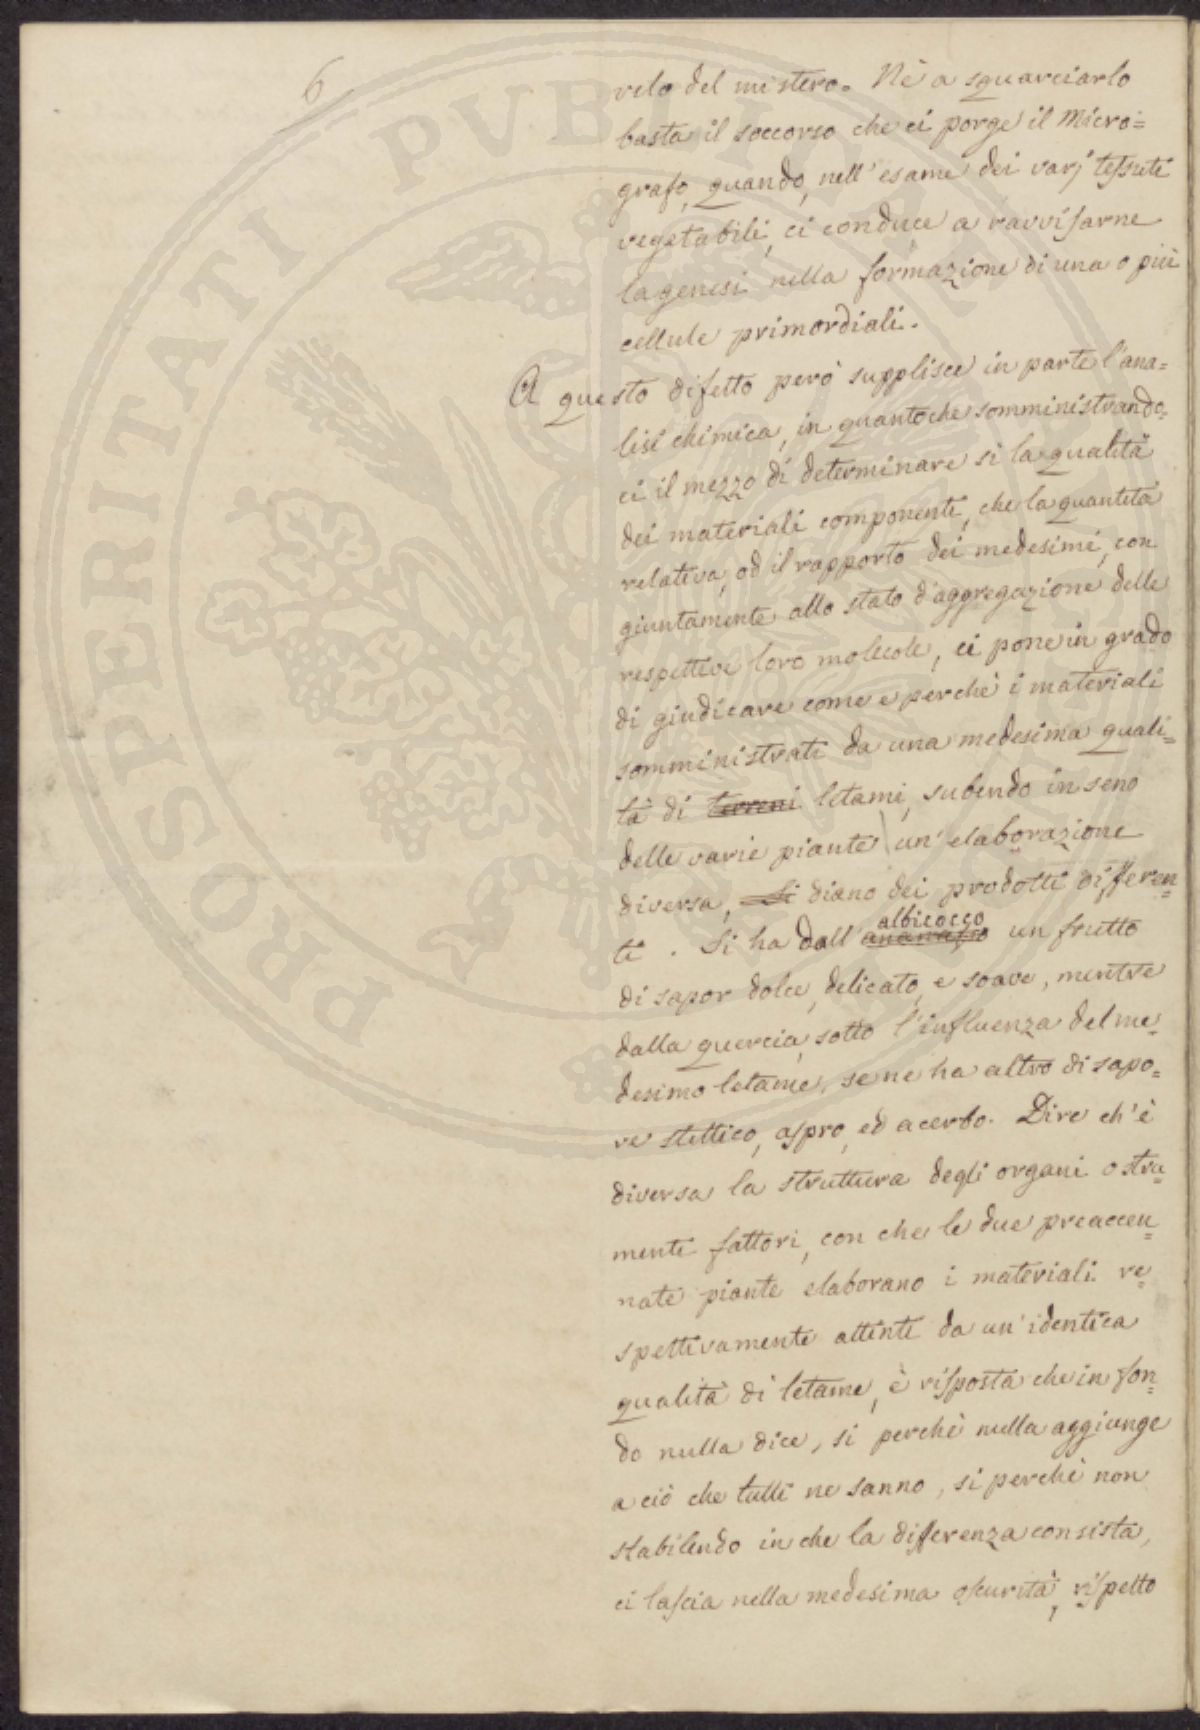 6
velo del mistero. Nè a squarciarlo
basta il soccorso che ci porge il Micro=
grafo, quando, nell'esame dei varj tessuti
vegetabili, ci conduce a ravvisarne
la genesi nella formazione di una o più
cellule primordiali.
A questo difetto però supplisce in parte l'ana=
lisi chimica, in quantoche somministrando=
ci il mezzo di determinare si la qualità
dei materiali componenti, che la quantità
relativa, od il rapporto dei medesimi, con
giuntamente allo stato d'aggregazione delle
respettive loro molecole, ci pone in grado
di giudicare come e perchè i materiali
somministrati da una medesima quali=
tà di terreni letami, subendo in seno
delle varie piante un'elaborazione
diversa, si diano dei prodotti differen=
ti. Si ha dall' albicocco ananasso un frutto
di sapor dolce, delicato, e soave, mentre
dalla quercia, sotto l'influenza del me=
desimo letame, se ne ha altro di sapo=
re stittico, aspro, ed acerbo. Dire ch'è
diversa la struttura degli organi o stru=
menti fattori, con che le due preaccen=
nate piante elaborano i materiali re=
spettivamente attinti da un'identica
qualità di letame, è risposta che in fon=
do nulla dice, si perchè nulla aggiunge
a ciò che tutti ne sanno, si perchè non
stabilendo in che la differenza consista,
ci lascia nella medesima oscurità, rispetto
PROSPERITATI PVBLICAE